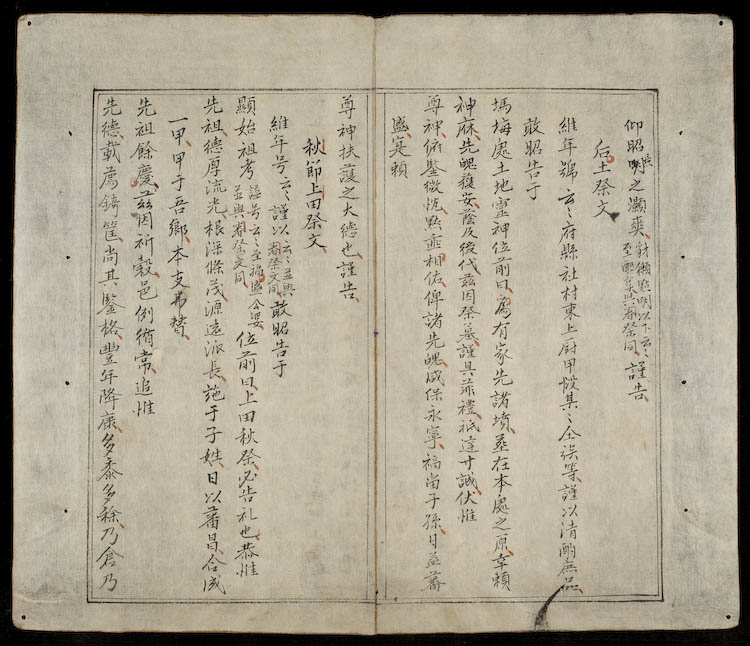 仰昭明之灝爽
謹告
后土祭文
維年號云〻府縣社村東上廚甲役某〻仝族等謹以清酌庶品
敢昭告于
塲塸處土地靈神位前曰為有家先諸墳墓在本處之原幸賴
神庥先魄獲安蔭及後代茲因祭墓謹具菲禮祗達寸誠伏惟
尊神俯鑒微忱默垂相佑俾諸先魄咸保永寧福尚子孫日益蕃
盛寔賴
尊神扶護之大德也謹告
秋節上田祭文
維年号云〻謹以云〻並與春祭文同敢昭告于
顯始祖考謚号云〻至
並與春祭文同
位前曰上田秋祭必告礼也恭惟
先祖德厚流光根深條茂源遠派長施于子姓日以蕃昌合成
一甲甲于吾鄉本支弗替
先祖餘慶茲因祈穀邑例循常追惟
先德載薦錡筐尚其鑒格豐年降康多黍多稌乃倉乃